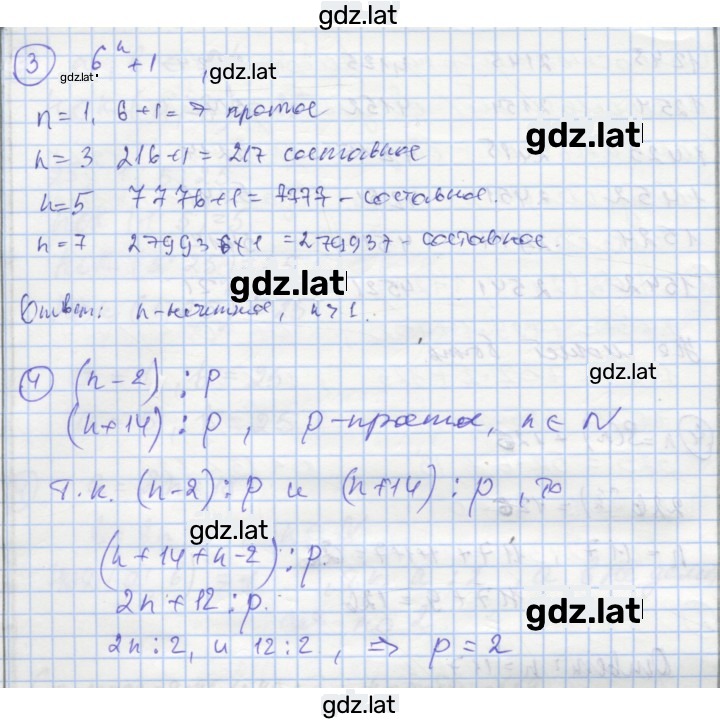 gdz.lat
③ 6ⁿ + 1 , gdz.lat
gdz.lat
n = 1, 6 + 1 = 7 простое
n = 3 216 + 1 = 217 составное
gdz.lat
n = 5 7776 + 1 = 7777 - составное.
n = 7 279936 + 1 = 279937 - составное.
gdz.lat
Ответ: n - нечетное, n > 1.
④ (n - 2) ⋮ p
gdz.lat
(n + 14) ⋮ p , p - простое, n ∈ N
Т.к. (n - 2) ⋮ p и (n + 14) ⋮ p , то
gdz.lat
(n + 14 + n - 2) ⋮ p.
2n + 12 ⋮ p.
gdz.lat
2n ⋮ 2, и 12 ⋮ 2 , ⇒ p = 2
gdz.lat